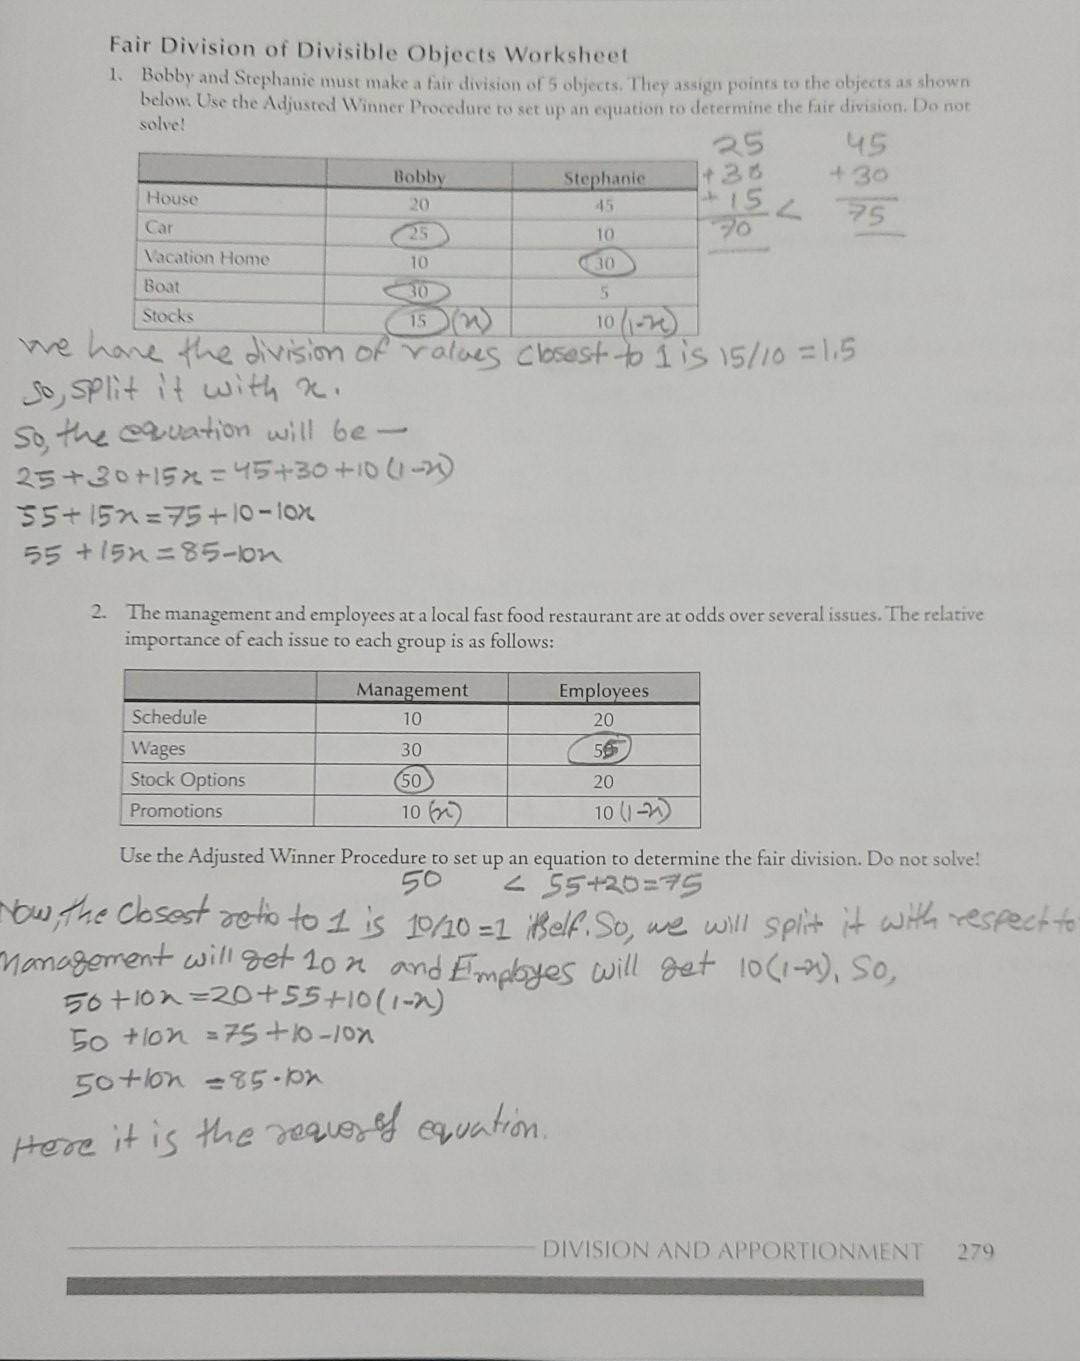 Fair Division of Divisible Objects Worksheet
1. Bobby and Stephanie must make a fair division of 5 objects. They assign points to the objects as shown
below. Use the Adjusted Winner Procedure to set up an equation to determine the fair division. Do not
solve!
25 45
+30 +30
+15 < 75
70
Bobby Stephanie
House 20 45
Car 25 10
Vacation Home 10 30
Boat 30 5
Stocks 15 (x) 10 (1-x)
we have the division of values closest to 1 is 15/10 = 1.5
so, split it with x.
So, the equation will be —
25+30+15x = 45+30+10(1-x)
55+15x = 75+10-10x
55+15x = 85-10x
2. The management and employees at a local fast food restaurant are at odds over several issues. The relative
importance of each issue to each group is as follows:
Management Employees
Schedule 10 20
Wages 30 55
Stock Options 50 20
Promotions 10 (x) 10 (1-x)
Use the Adjusted Winner Procedure to set up an equation to determine the fair division. Do not solve!
50 < 55+20=75
Now, the closest ratio to 1 is 10/10 = 1 itself. So, we will split it with respect to
Management will get 10x and Employes will get 10(1-x). So,
50+10x = 20+55+10(1-x)
50+10x = 75+10-10x
50+10x = 85-10x
Here it is the equation.
DIVISION AND APPORTIONMENT 279